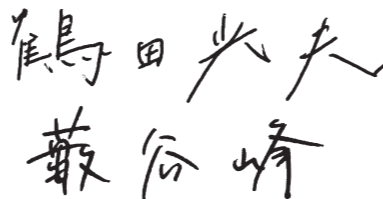 鶴田光夫
藪谷峰